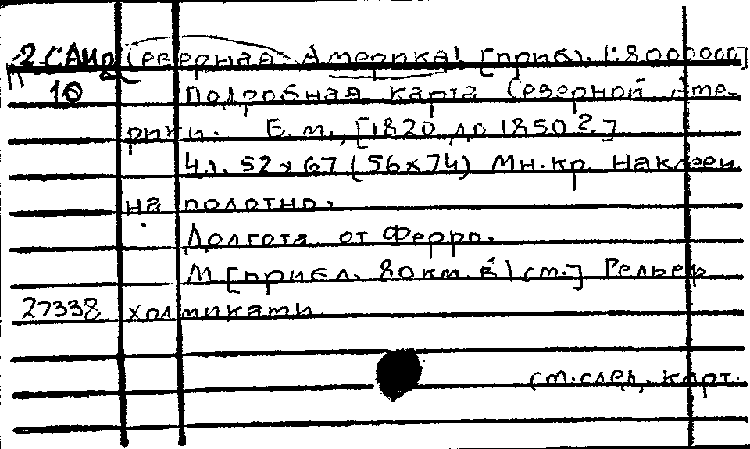 Северная Америка! [приб. 1:8000000]
10 Подробная карта Северной Аме-
рики. Б.м., [1820 до 1850 г.]
4 л. 52 x 67 (56 x 74) Мн.кр. Наклеен
на полотно.
Долгота от Ферро.
М [прибл. 80 км. в 1 см.] Рельеф
27338 холмиками
См. след. карт.